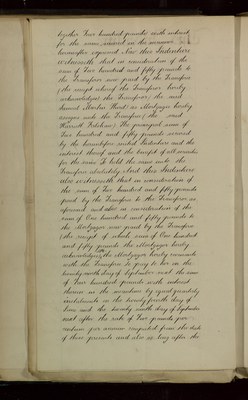 together Four hundred pounds with interest
for the same, secured in the manner
hereinafter expressed Now this Indenture
witnesseth that in consideration of the
sum of Four hundred and fifty pounds to
the Transferor now paid by the Transferee
(the receipt whereof the Transferor hereby
acknowledges) the Transferor the said
as Mortgagee hereby
assigns unto the Transferee the said
Harriett The principal sum of
Four hundred and fifty pounds secured
by the hereinbefore recited Indenture and the
interest thereof and the benefit of all securities
for the same To hold the same unto the
Transferee absolutely And this Indenture
also witnesseth that in consideration of
the sum of Four hundred and fifty pounds
paid by the Transferee to the Transferor as
aforesaid and also in consideration of the
sum of One hundred and fifty pounds to
the Mortgagor now paid by the Transferee
(the receipt of which sum of One hundred
and fifty pounds the Mortgagor hereby
acknowledges) the Mortgagor hereby covenants
with the Transferee to pay to her on the
twenty ninth day of September next the sum
of Four hundred pounds with interest
thereon in the meantime by equal quarterly
instalments on the twenty fourth day of
June and the twenty ninth day of September
next after the rate of Four pounds per
centum per annum computed from the date
of these presents and also as long after the